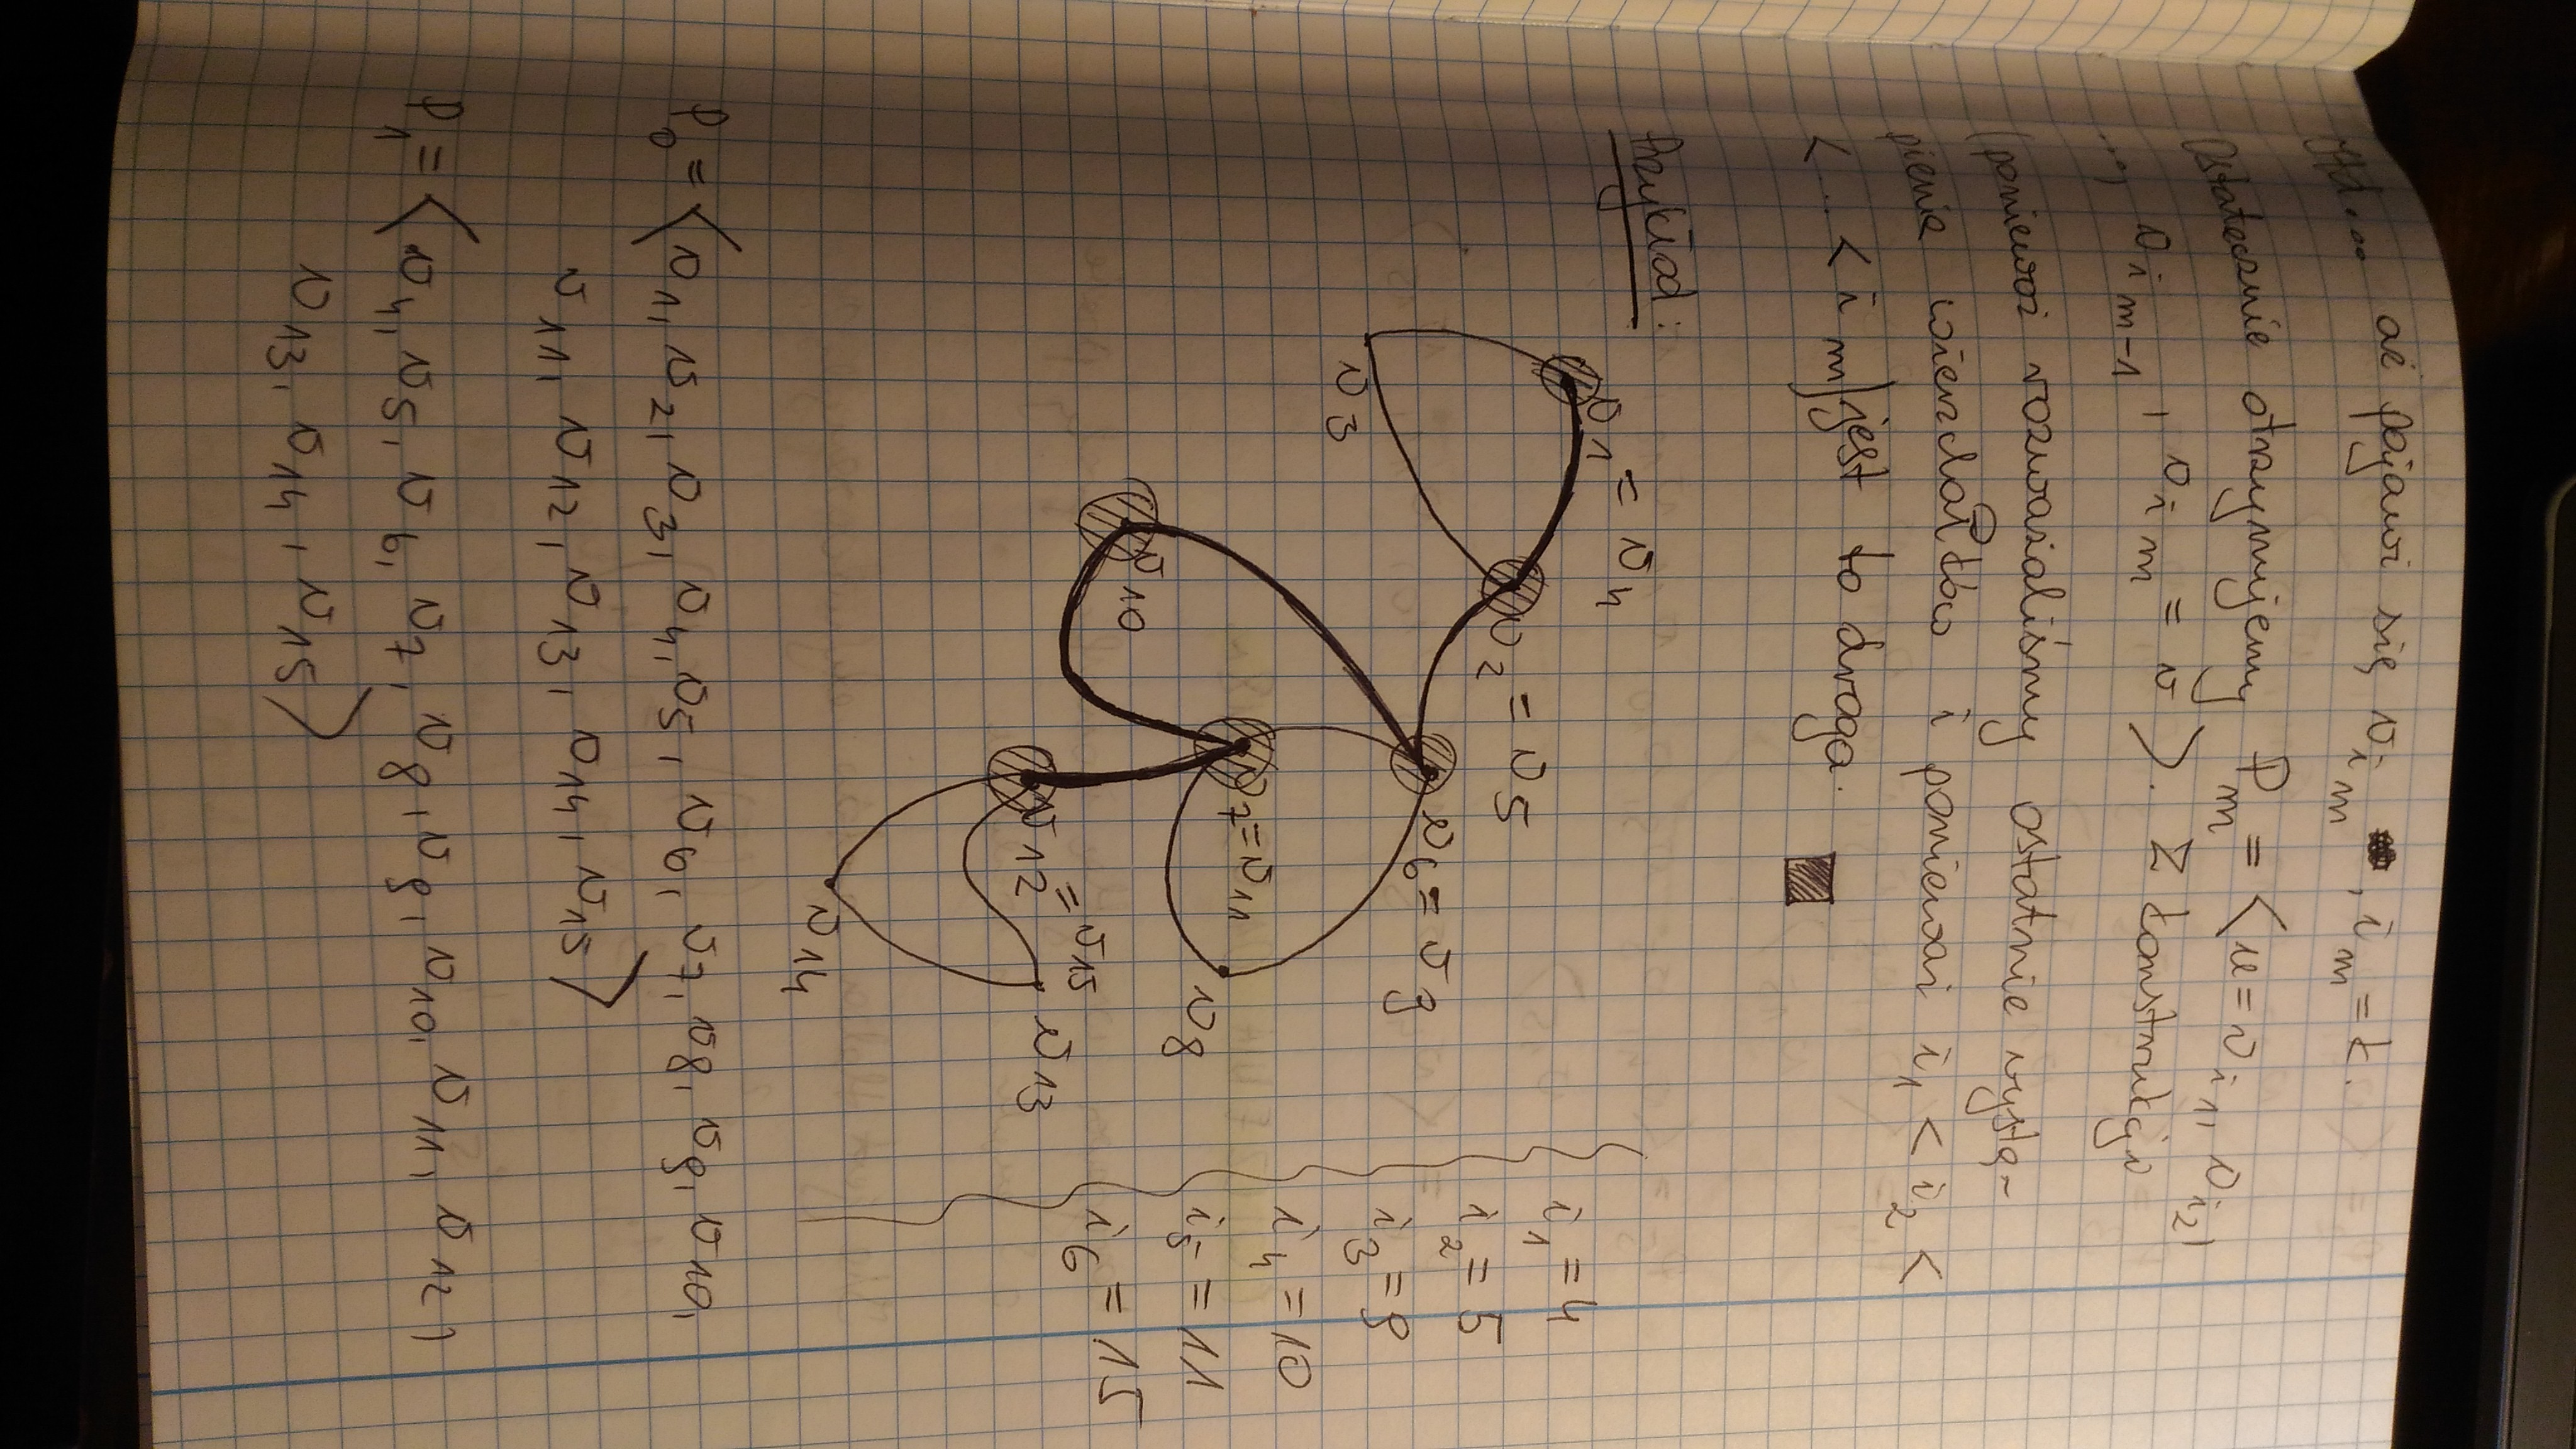 itd... aż pojawi się v_{i_m}, i_m = k.
Ostatecznie otrzymujemy P_m = ⟨u = v_{i_1}, v_{i_2},
..., v_{i_{m-1}}, v_{i_m} = v⟩. Z konstrukcji
(ponieważ rozważaliśmy ostatnie wystą-
pienie wierzchołków i ponieważ i_1 < i_2 <
< ... < i_m) jest to droga.
Przykład:
v_1 = v_4
v_2 = v_5
v_6 = v_9
v_3
v_7 = v_11
v_8
v_10
v_12 = v_15
v_13
v_14
i_1 = 4
i_2 = 5
i_3 = 9
i_4 = 10
i_5 = 11
i_6 = 15
P_0 = ⟨v_1, v_2, v_3, v_4, v_5, v_6, v_7, v_8, v_9, v_10,
v_11, v_12, v_13, v_14, v_15⟩
P_1 = ⟨v_4, v_5, v_6, v_7, v_8, v_9, v_10, v_11, v_12,
v_13, v_14, v_15⟩